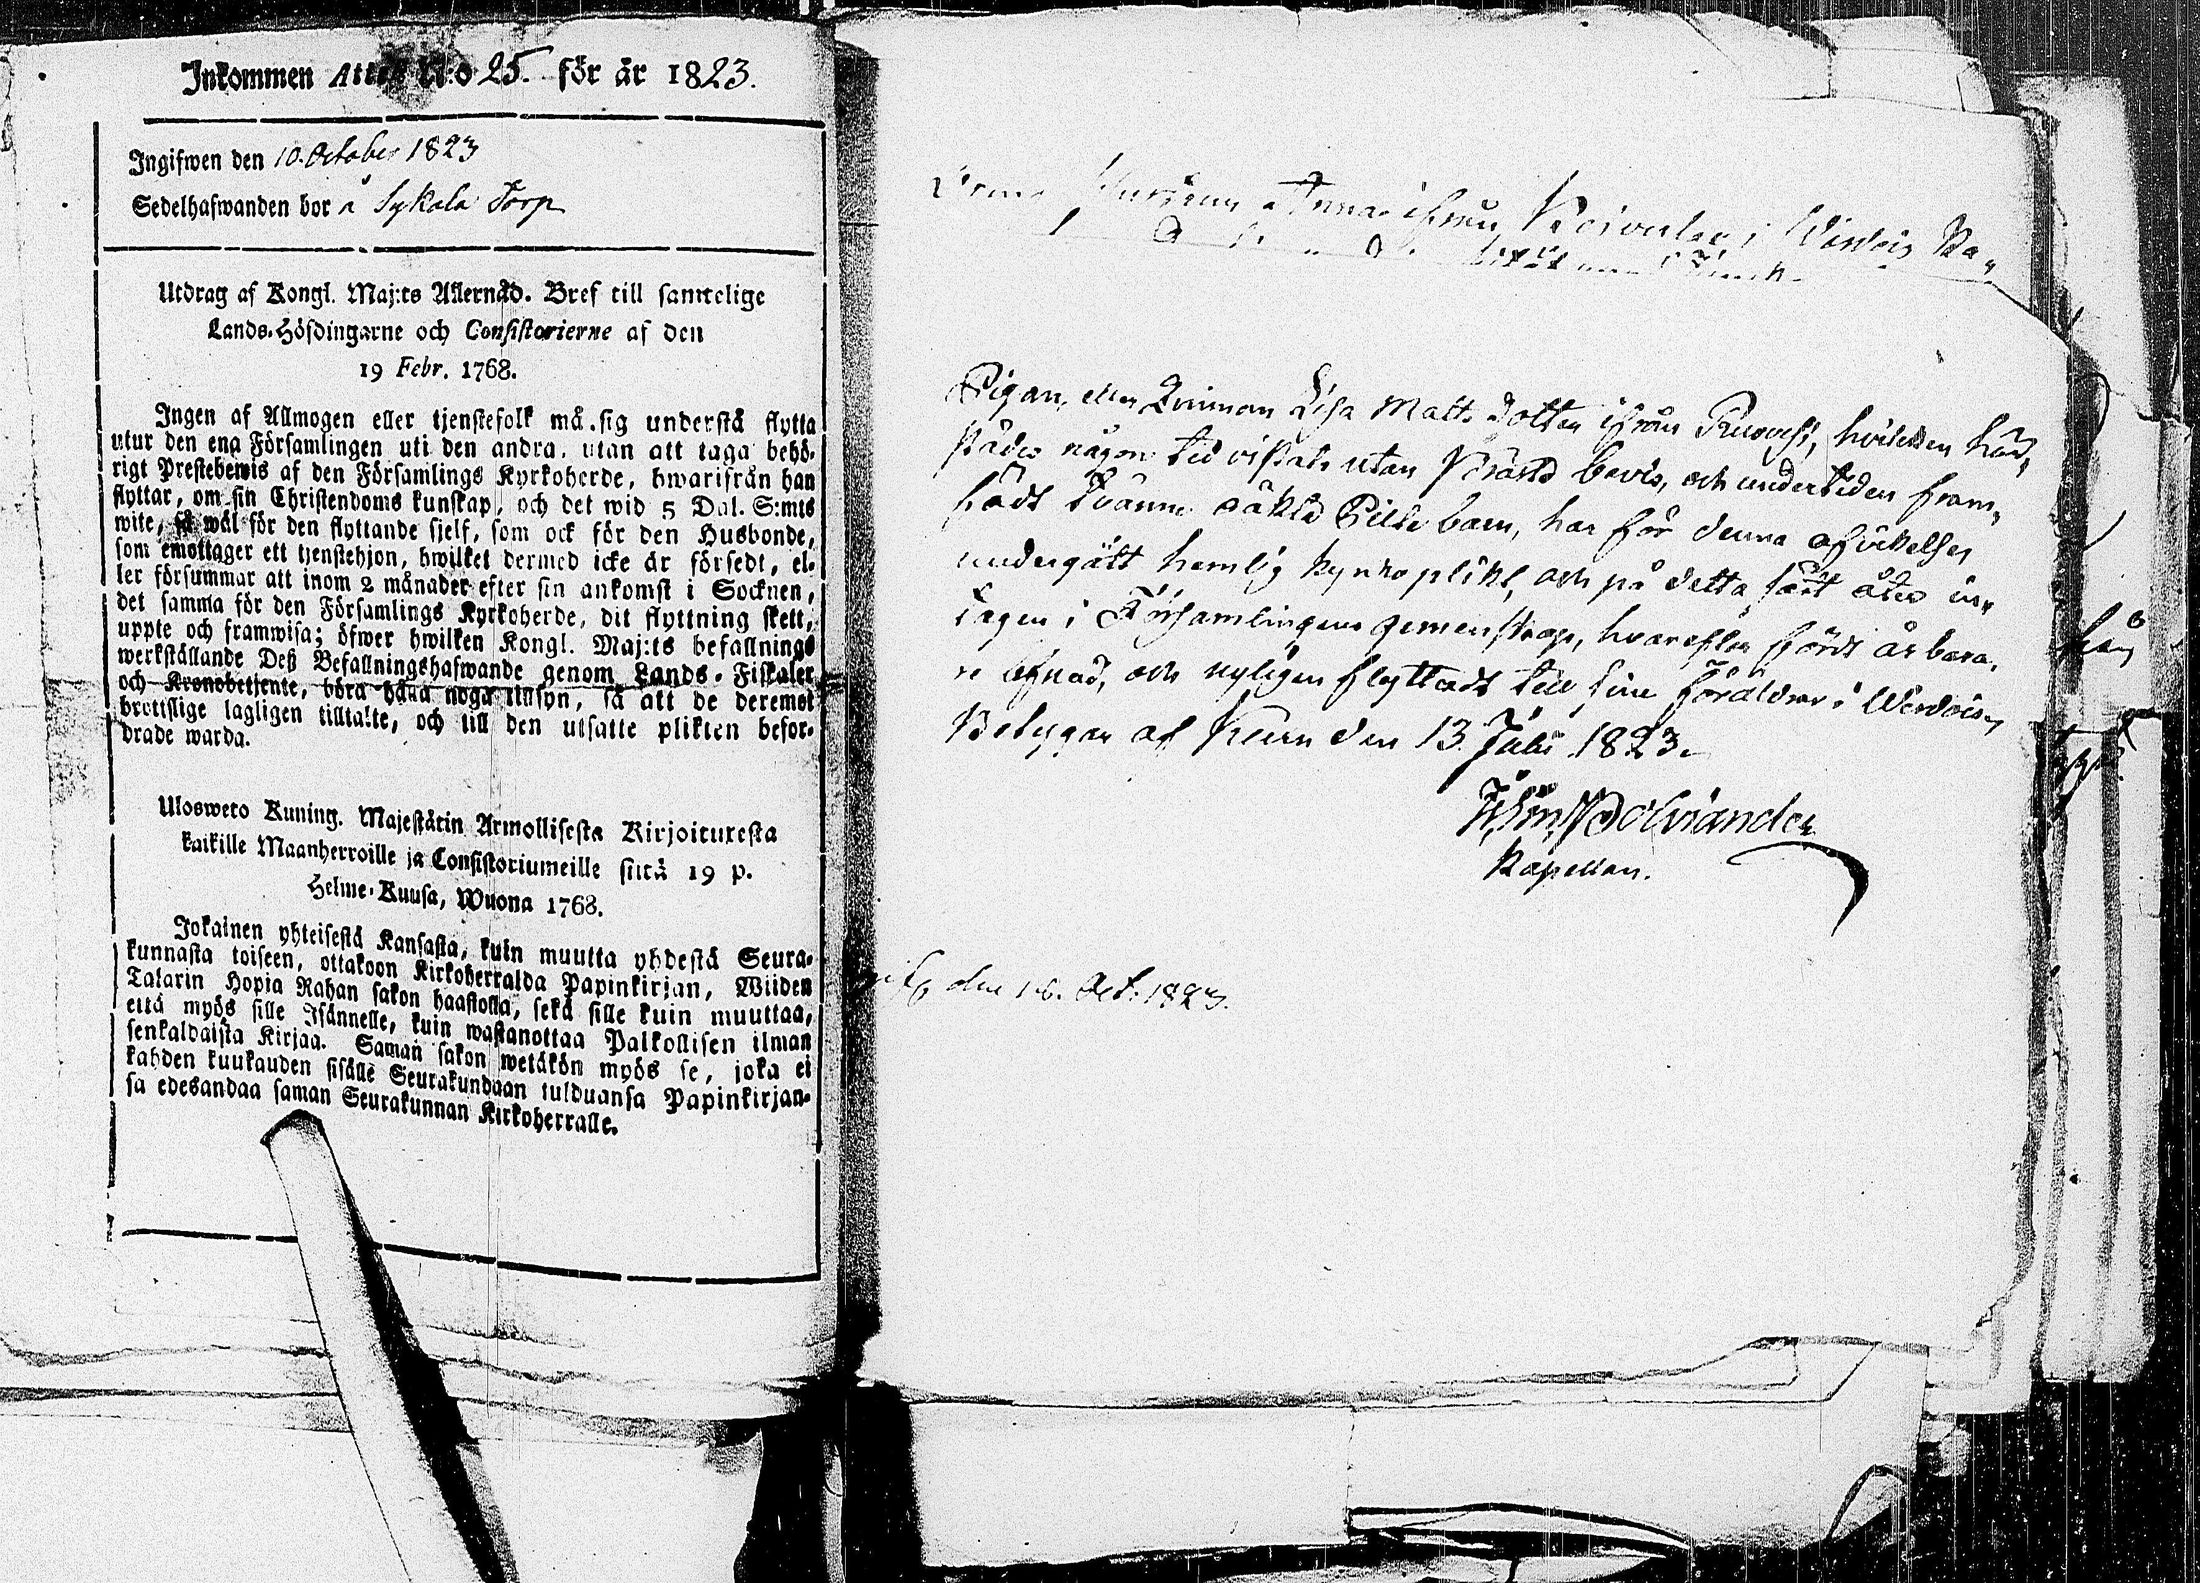 Inkommen Attest N:o 25. för år 1823.
Ingifwen den 10. October 1823
Sedelhafwanden bor å Sykala Torp
Utdrag af Kongl. Maj:ts Allernåd. Bref till samtelige
Lands-Höfdingarne och Consistorierne af den
19 Febr. 1768.
Ingen af Allmogen eller tjenstefolk må sig understå flytta
utur den ena Församlingen uti den andra, utan att taga behö-
rigt Prestebewis af den Församlings Kyrkoherde, hwarifrån han
flyttar, om sin Christendoms kunskap, och det wid 5 Dal. S:mts
wite, så wäl för den flyttande sjelf, som ock för den Husbonde,
som emottager ett tjenstehjon, hwilket dermed icke är försedt, el-
ler försummar att inom 2 månader efter sin ankomst i Socknen,
det samma för den Församlings Kyrkoherde, dit flyttning skett,
uppte och framwisa; öfwer hwilken Kongl. Maj:ts befallnings
werkställande Deß Befallningshafwande genom Lands-Fiskaler
och Kronobetjente, böra hafva noga insyn, så att de deremot
brottslige lagligen tilltalte, och till den utsatte plikten befor-
drade warda.
Ulosweto Kuning. Majestätin Armollisesta Kirjoituxesta
kaikille Maanherroille ja Consistoriumeille siitä 19 p.
Helme-Kuusa, Wuona 1768.
Jokainen yhteisestä Kansasta, kuin muutta yhdestä Seura-
kunnasta toiseen, ottakoon Kirkoherralda Papinkirjan, Wiiden
Talarin Hopia Rahan sakon haastolla, sekä sille kuin muuttaa,
että myös sille Isännelle, kuin wastanottaa Palkollisen ilman
senkaldaista Kirjaa. Saman sakon wetäkön myös se, joka ei
kahden kuukauden sisälle Seurakundaan tulduansa Papinkirjan-
sa edesandaa saman Seurakunnan Kirkoherralle.
Anna ifrån i Wirdois Ka-
Pigan, eller Qvinnan Lisa Matts dotter ifrån Ruovesi, hvilken här-
städes någon tid vistats utan Prästd bevis, och undertiden fram-
födt tvänne oäkta Pilte barn, har för denna afvikelsen
undergått hemlig kyrkoplikt, och på detta sätt åter in-
tagen i Församlingens gemenskap, hvarefter fördt ärbara.
re lefnad, och nyligen flyttadt till sine föräldrar i Wirdois,
Betygar af Keuru den 13. Julii 1823.
Kapellan.
den 10. Oct. 1823.